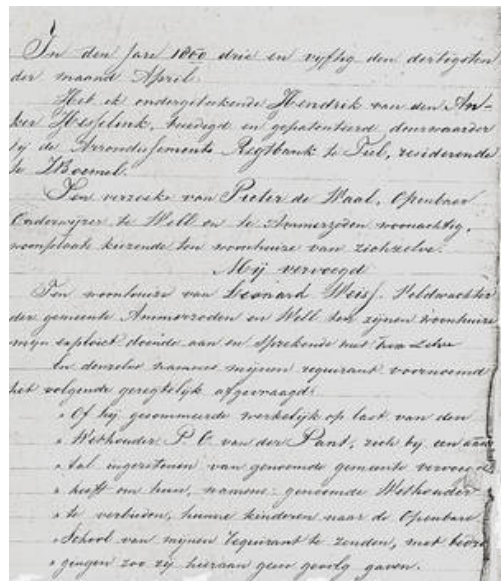 In den Jare 1800 drie en vyftig den dertigsten
der maand April.
Heb ik ondergeteekende Hendrik van den An-
ker Hesselink, beëdigd en gepatenteerd deurwaarder
bij de Arrondissements Regtbank te Tiel, residerende
te ZBoemel.
Ten verzoeke van Pieter de Waal, Openbaar
Onderwijzer te Well en te Ammerzoden woonachtig,
woonplaats kiezende ten woonhuize van zichzelve.
Mij vervoegd
Ten woonhuize van Leonard Weiss. Veldwachter
der gemeente Ammerzoden en Well ten zijnen woonhuize
mijn exploict doende aan en sprekende met
En denzelve namens mijnen requirant voornoemd
het volgende geregtelijk afgevraagd:
„ Of hij gesommeerde werkelijk op last van den
„ Wethouder P. C. van der Pant, zich bij een aan-
„ tal ingezetenen van genoemde gemeente vervoegd
„ heeft om hun, namens genoemde Wethouder
„ te verbieden, hunne kinderen naar de Openbare
„ School van mijnen requirant te zenden, met bedrei-
„ gingen zoo zij hieraan geen gevolg gaven.